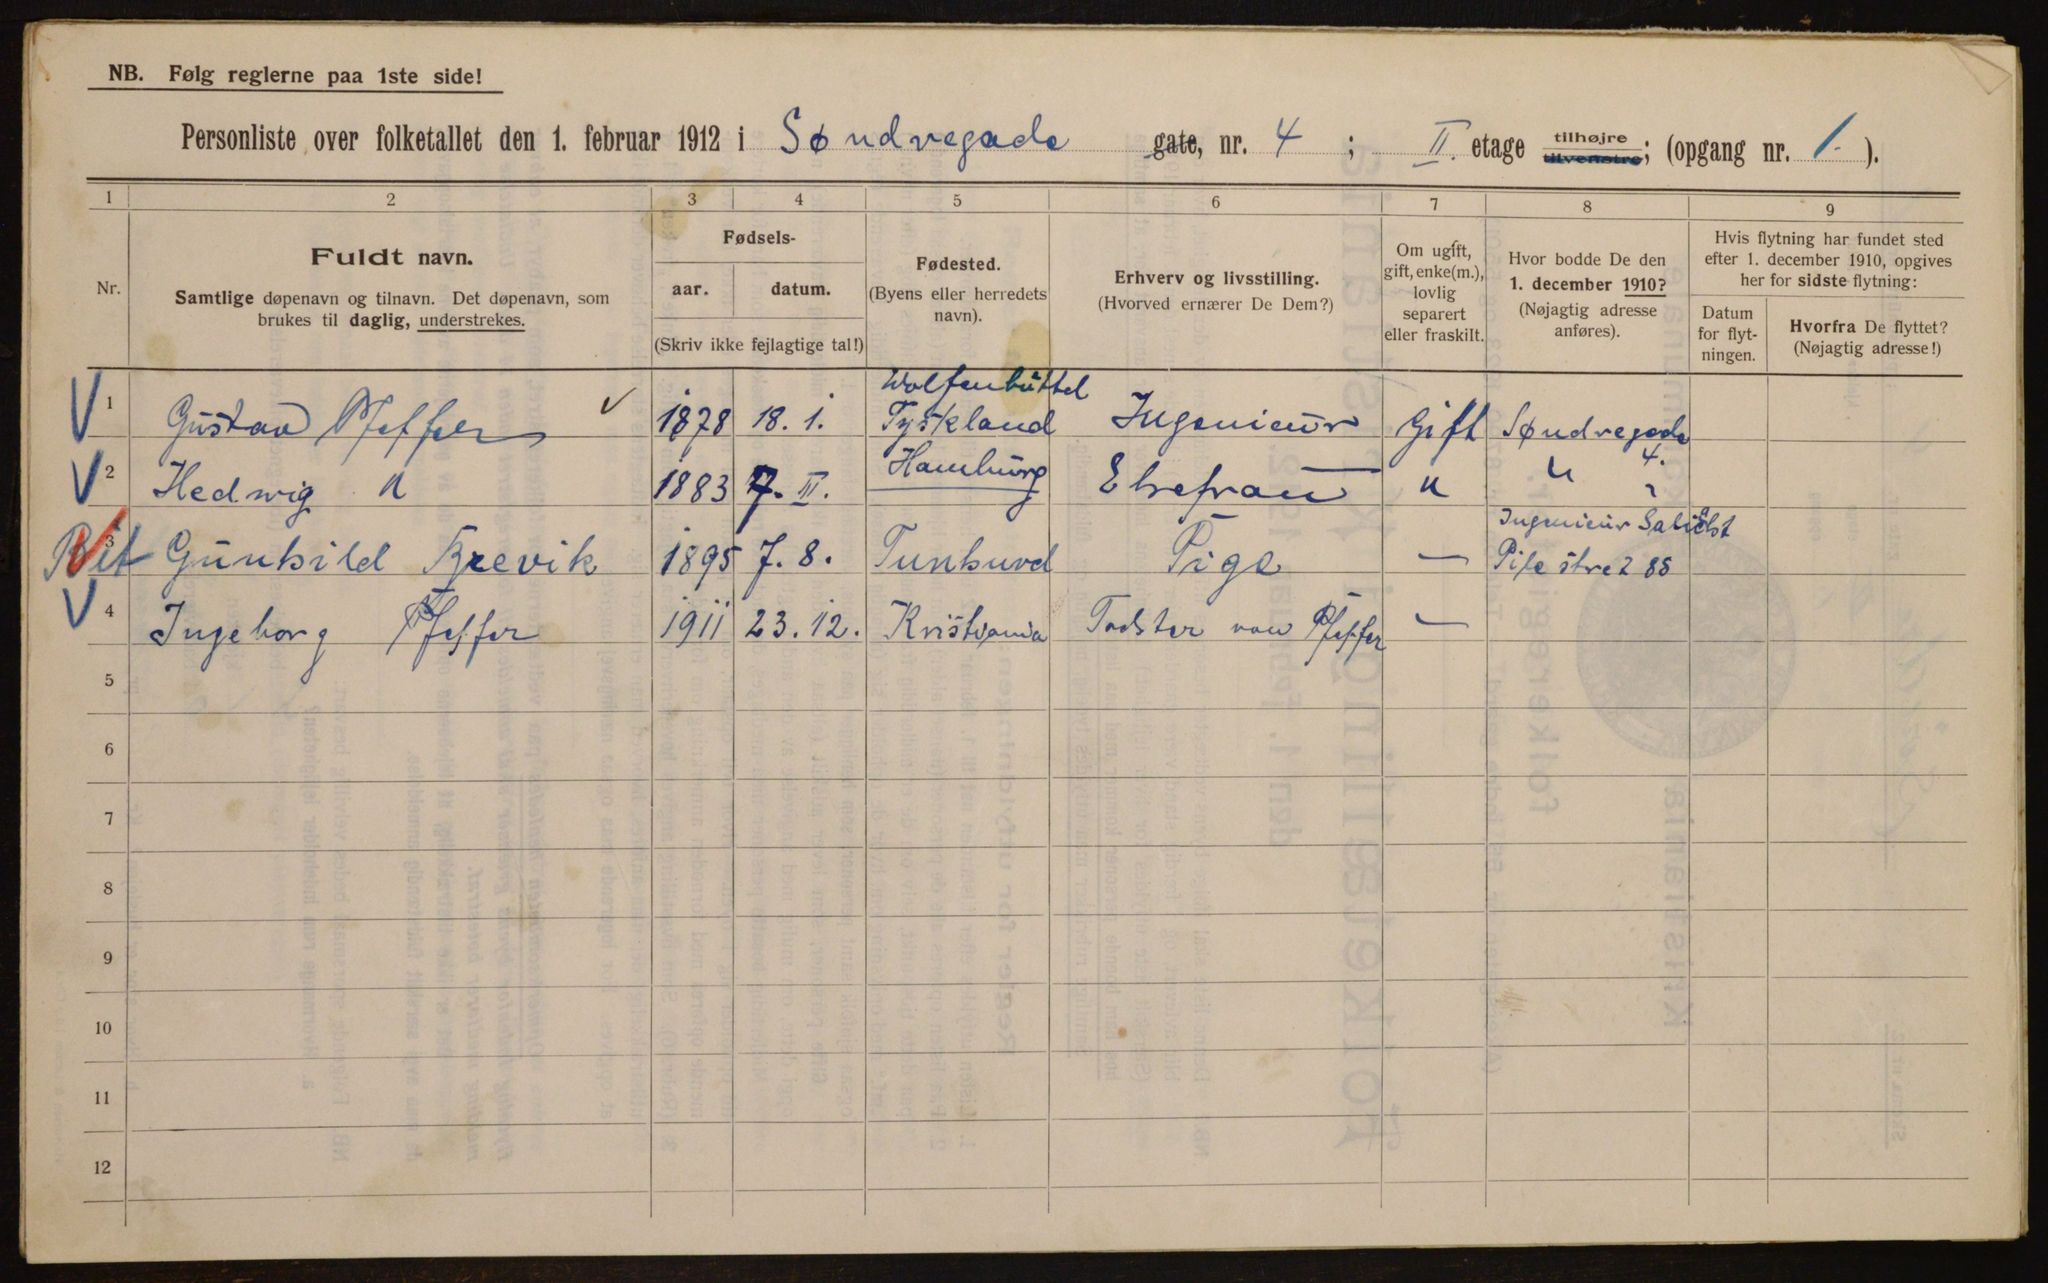 NB. Følg reglerne paa 1ste side!
Personliste over folketallet den 1. februar 1912 i Søndregade gate, nr. 4 ; II. etage tilhøjre tilvenstre; (opgang nr. 1. ).
1 2 3 4 5 6 7 8 9
Nr.
Fuldt navn.
Samtlige døpenavn og tilnavn. Det døpenavn, som
brukes til daglig, understrekes.
Fødsels-
aar. datum.
(Skriv ikke fejlagtige tal!)
Fødested.
(Byens eller herredets
navn).
Erhverv og livsstilling.
(Hvorved ernærer De Dem?)
Om ugift,
gift, enke(m.),
lovlig
separert
eller fraskilt.
Hvor bodde De den
1. december 1910?
(Nøjagtig adresse
anføres).
Hvis flytning har fundet sted
efter 1. december 1910, opgives
her for sidste flytning:
Datum
for flyt-
ningen.
Hvorfra De flyttet?
(Nøjagtig adresse!)
Wolfenbüttel
V 1 Gustav Pfeffer V 1878 18. 1. Tyskland Ingenieur Gift Søndregade
4.
V 2 Hedwig " 1883 7. II. Hamburg Ehefrau " " "
Ingenieur
3 Gunhild Brevik 1895 7. 8. Tunhuvd Pige — Pilestret 88
V 4 Ingeborg Pfeffer 1911 23. 12. Kristiania Tochter von Pfeffer —
5
6
7
8
9
10
11
12